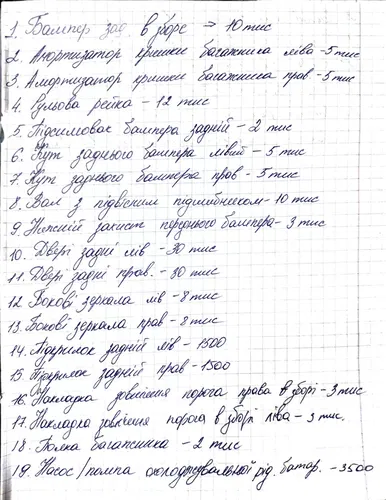 1. Бампер зад в зборе => 10 тис
2. Амортизатор кришки багажника ліва - 5 тис
3. Амортизатор кришки багажника прав - 5 тис
4. Рульова рейка - 12 тис
5. Підсилювас бампера задній - 2 тис
6. Кут заднього бампера лівий - 5 тис
7. Кут заднього бампера прав - 5 тис
8. Вал з підвісним підшибнеком - 10 тис
9. Нижній захист переднього бампера - 3 тис
10. Двері задні лів - 30 тис
11. Двері задні прав. - 30 тис
12. Бокові зеркала лів - 8 тис
13. Бокові зеркала прав - 8 тис
14. Підкрилок задній лів - 1500
15. Підкрилок задній прав - 1500
16. Накладка зовнішня порога права в зборі - 3 тис
17. Накладка зовнішня порога в зборі ліва - 3 тис.
18. Полка багажника - 2 тис
19. Насос/помпа охолоджувальної рід. батар. - 3500